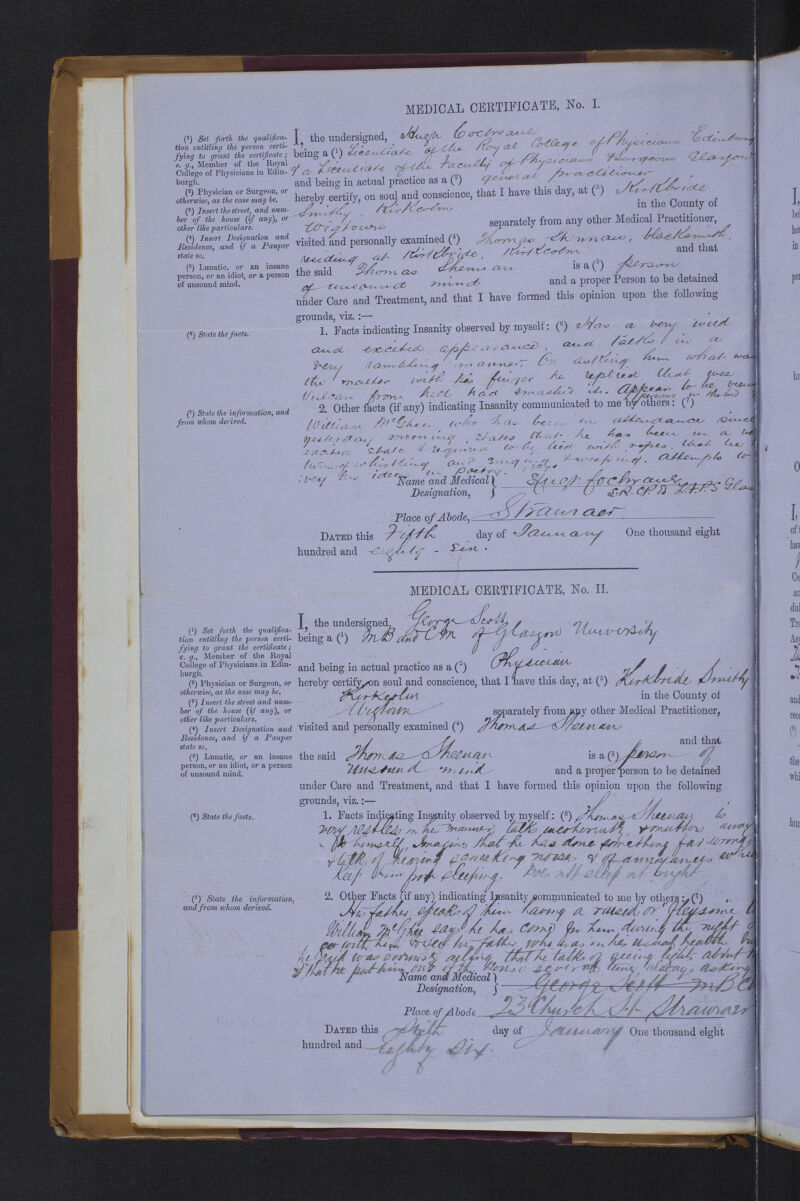 MEDICAL CERTIFICATE, No. I.
(¹) Set forth the qualifica-
tion entitling the person certi-
fying to grant the certificate;
e. g., Member of the Royal
College of Physicians in Edin-
burgh.
(²) Physician or Surgeon, or
otherwise, as the case may be.
(³) Insert the street, and num-
ber of the house (if any), or
other like particulars.
(⁴) Insert Designation and
Residence, and if a Pauper
state so.
(⁵) Lunatic, or an insane
person, or an idiot, or a person
of unsound mind.
I, the undersigned, Hugh Cochrane
being a (¹) Licentiate of the Royal College of Physicians Edinburg
& a Licentiate of the Faculty of Physicians & Surgeons Glasgow
and being in actual practice as a (²) general practitioner
hereby certify, on soul and conscience, that I have this day, at (³) Kirkbride
Smithy, Kirkcolm in the County of
Wigtown separately from any other Medical Practitioner,
visited and personally examined (⁴) Thomas Shennan, blacksmith,
residing at Kirkbride, Kirkcolm and that
the said Thomas Shennan is a (⁵) person
of unsound mind and a proper Person to be detained
under Care and Treatment, and that I have formed this opinion upon the following
grounds, viz. :—
(⁶) State the facts.
1. Facts indicating Insanity observed by myself: (⁶) Has a very wild
and excited appearance, and talks in a
very rambling manner. On asking him what was
the matter with his finger he replied that
Vulcan from hell had smashed it. Appears to be
persons in the bed
(⁷) State the information, and
from whom derived.
2. Other facts (if any) indicating Insanity communicated to me by others: (⁷)
William McGhee who has been in attendance since
yesterday morning, states that he has been in a
excited state & required to be tied with ropes, that he
whistling and singing & weeping. Attempts to
his ideas in poetry.
Name and Medical Designation, Hugh Cochrane
L.R.C.P. Ed L.F.P.S Glas
Place of Abode, Stranraer
DATED this Fifth day of January One thousand eight
hundred and eighty-six.
MEDICAL CERTIFICATE, No. II.
(¹) Set forth the qualifica-
tion entitling the person certi-
fying to grant the certificate;
e. g., Member of the Royal
College of Physicians in Edin-
burgh.
(²) Physician or Surgeon, or
otherwise, as the case may be.
(³) Insert the street and num-
ber of the house (if any), or
other like particulars.
(⁴) Insert Designation and
Residence, and if a Pauper
state so.
(⁵) Lunatic, or an insane
person, or an idiot, or a person
of unsound mind.
I, the undersigned, George Scott
being a (¹) MB and CM of Glasgow University
and being in actual practice as a (²) Physician
hereby certify, on soul and conscience, that I have this day, at (³) Kirkbride Smithy
Kirkcolm in the County of
Wigtown separately from any other Medical Practitioner,
visited and personally examined (⁴) Thomas Sheenan
and that
the said Thomas Sheenan is a (⁵) person of
unsound mind and a proper person to be detained
under Care and Treatment, and that I have formed this opinion upon the following
grounds, viz. :—
(⁶) State the facts.
1. Facts indicating Insanity observed by myself: (⁶) Thomas Sheenan is
very restless in his manner, talks incoherently & mutters away
to himself, Imagines that he has done something far wrong
& talks of hearing squeaking noises & of annoyances
keep him from sleeping. Does not sleep at night
(⁷) State the information,
and from whom derived.
2. Other Facts (if any) indicating Insanity communicated to me by others: (⁷)
His father speaks of him having a raised or
William McGhee says he has come for him during the night
go with him & see his father who was in his usual health
he said was seriously ailing, that he talks of seeing lights about
& that he put him out of the house several times always asking
Name and Medical Designation, George Scott MB C
Place of Abode 23 Church St Stranraer
DATED this Fifth day of January One thousand eight
hundred and eighty six.